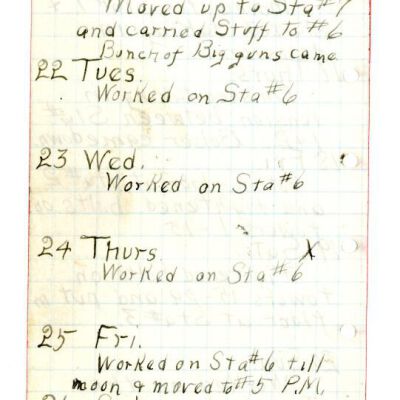 Moved up to Sta #7
and carried Stuff to #6
Bunch of Big guns came
22 Tues.
Worked on Sta #6
23 Wed.
Worked on Sta #6
24 Thurs. X
Worked on Sta #6
25 Fri.
Worked on Sta #6 till
noon & moved to #5 P.M.